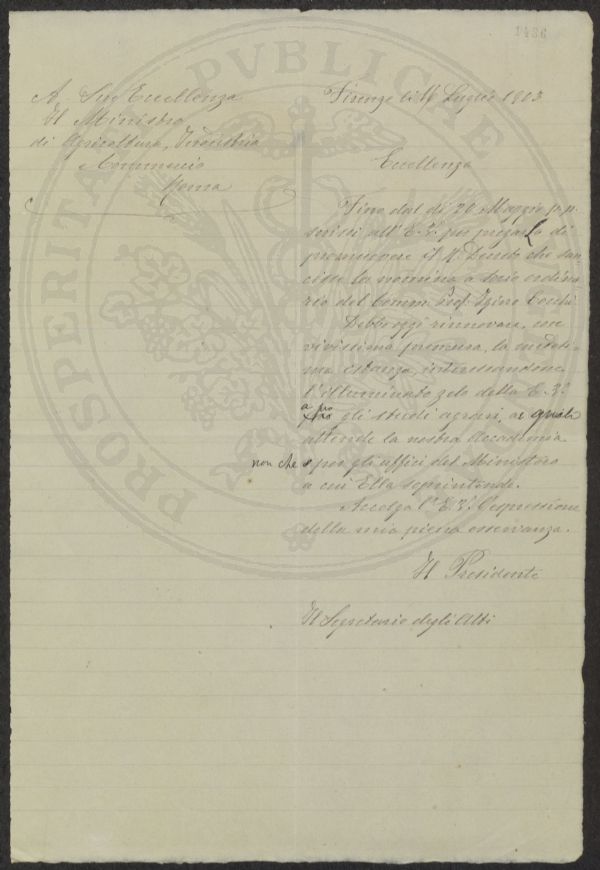 1486
A Sua Eccellenza
Il Ministro
di Agricoltura, Industria
Commercio
Roma
Firenze li 14 Luglio 1903
Eccellenza
Fino dal dì 20 Maggio p. p.
scrissi all'E. V. per pregarLa di
promuovere il R. Decreto che san-
cisse la nomina a Socio ordina-
rio del Comm. Prof. Igino Cocchi
Debbo oggi rinnovare, con
vivissima premura, la medesi-
ma istanza, interessandone
l'illuminato zelo della E. V.
a pro gli studi agrari, ai quali
attende la nostra Accademia
non che per gli uffici del Ministero
a cui Ella soprintende.
Accolga l'E. V. l'espressione
della mia piena osservanza.
Il Presidente
Il Segretario degli Atti
PROSPERITATI PVBLICAE